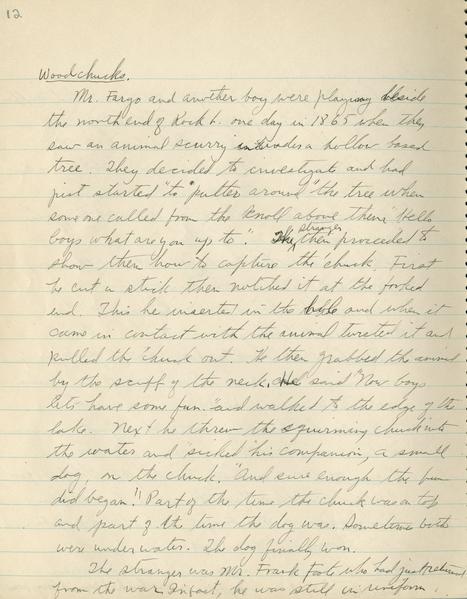 12
Woodchucks.
Mr. Fargo and another boy were playing beside
the north end of Rock L. one day in 1865 when they
saw an animal scurry into a hollow based
tree. They decided to investigate and had
just started to "putter around" the tree when
someone called from the knoll above them "hello
boys what are you up to". The stranger then proceeded to
show them how to capture the 'chuck. First
he cut a stick then notched it at the forked
end. This he inserted in the hole and when it
came in contact with the animal twisted it and
pulled the 'chuck out. He then grabbed the animal
by the scuff of the neck, He said "Now boys
lets have some fun." and walked to the edge of the
lake. Next he threw the squirming chuck into
the water and "sicked" his companion, a small
dog, on the chuck. "And sure enough the fun
did began"! Part of the time the chuck was on top
and part of the time the dog was. Sometimes both
were under water. The dog finally won.
The stranger was Mr. Frank Foote who had just returned
from the war. In fact, he was still in uniform.